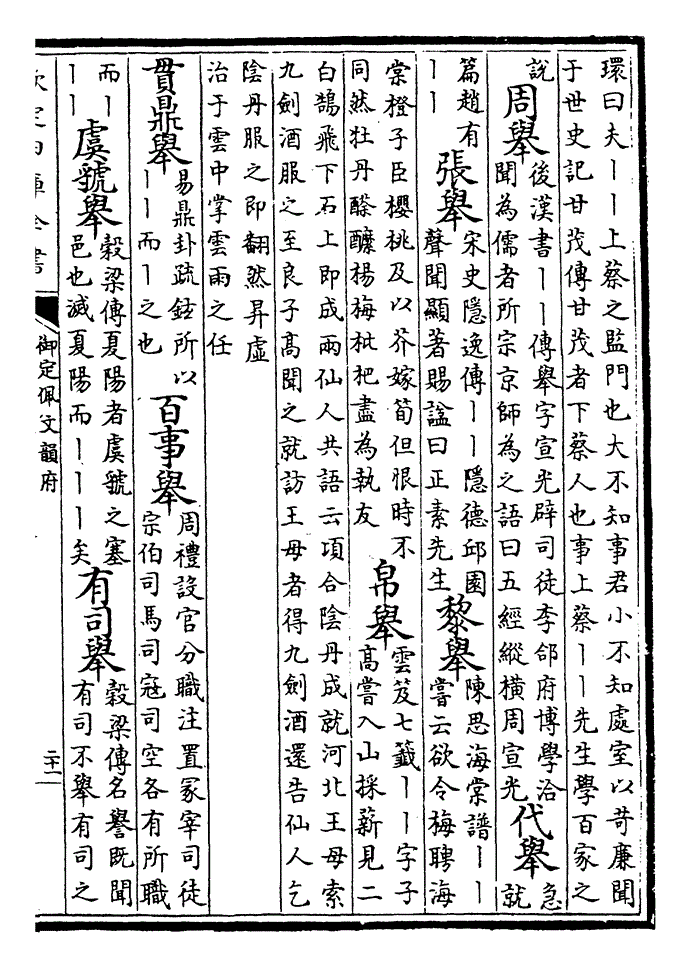 環曰夫丨丨上蔡之監門也大不知事君小不知處室以苛廉聞
于世史記甘茂傳甘茂者下蔡人也事上蔡丨丨先生學百家之
說
周舉
後漢書丨丨傳舉字宣光辟司徒李郃府博學洽
聞為儒者所宗京師為之語曰五經縱橫周宣光
代舉
急
就
篇趙有
丨丨
張舉
宋史隱逸傳丨丨隱德邱園
聲聞顯著賜諡曰正素先生
黎舉
陳思海棠譜丨丨
嘗云欲令梅聘海
棠橙子臣櫻桃及以芥嫁筍但恨時不
同然牡丹酴醿楊梅枇杷盡為執友
帛舉
雲笈七籤丨丨字子
高嘗入山採薪見二
白鵠飛下石上即成兩仙人共語云項合陰丹成就河北王母索
九劍酒服之至良子高聞之就訪王母者得九劍酒還告仙人乞
陰丹服之即翻然昇虛
治于雲中掌雲雨之任
貫鼎舉
易鼎卦疏鉉所以
丨丨而丨之也
百事舉
周禮設官分職注置冢宰司徒
宗伯司馬司寇司空各有所職
而丨
丨丨
虞虢舉
穀梁傳夏陽者虞虢之塞
邑也滅夏陽而丨丨丨矣
有司舉
穀梁傳名譽既聞
有司不舉有司之
欽定四庫全書
御定佩文韻府
二十一